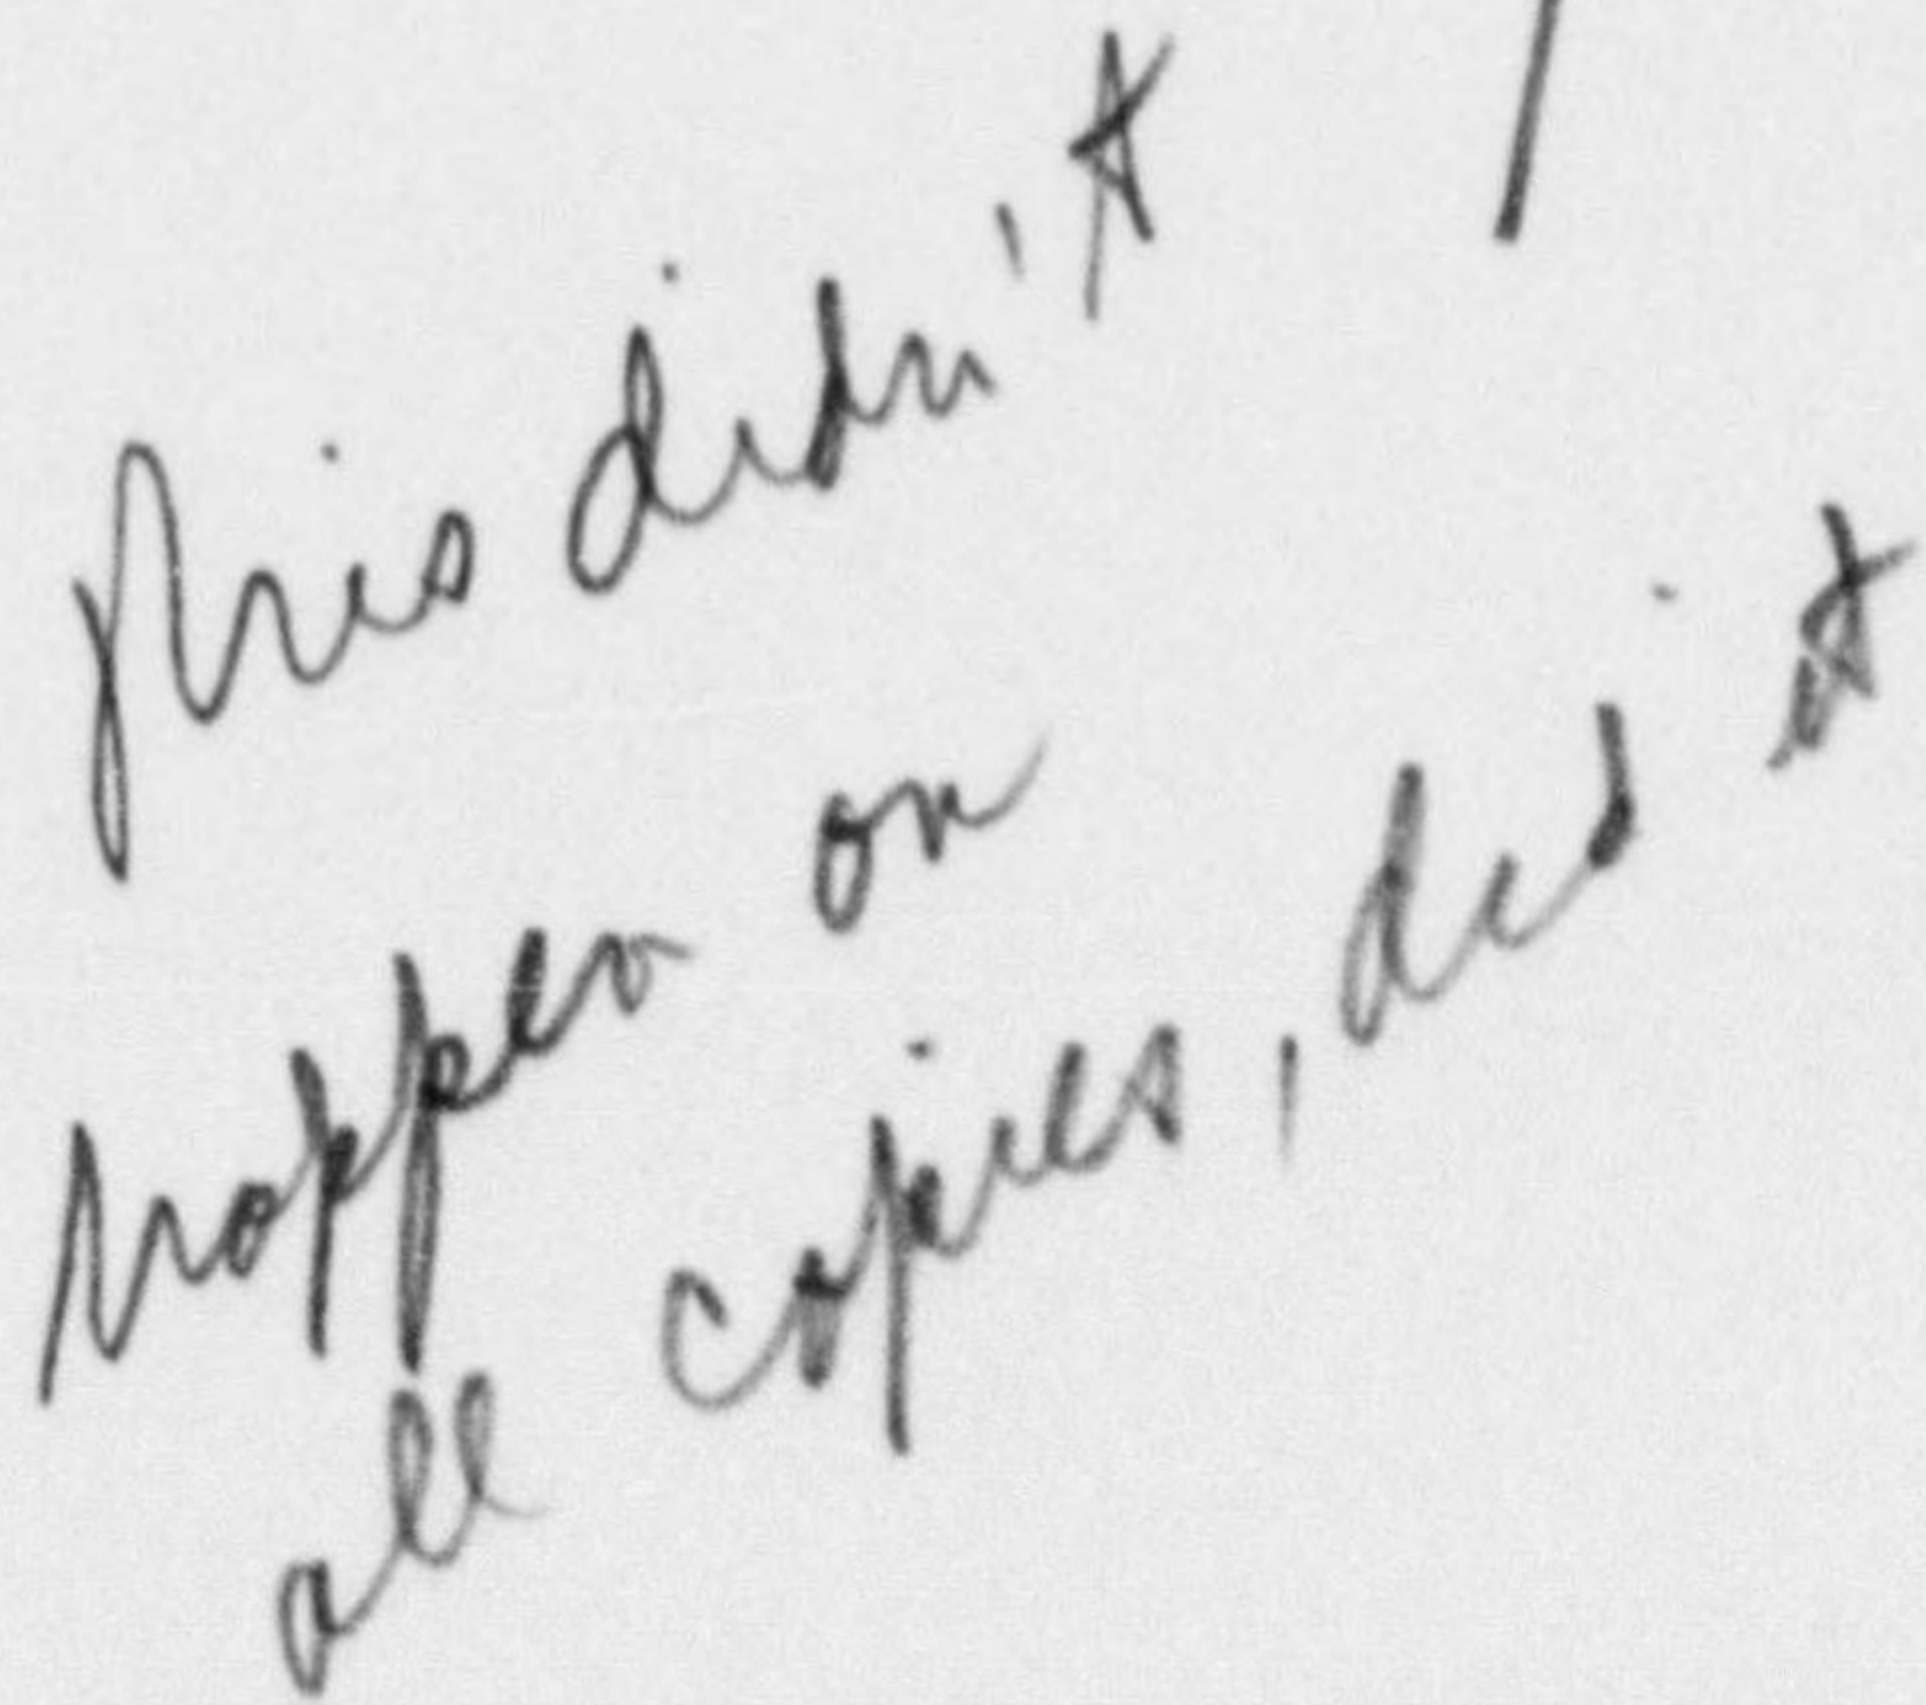 This didn't
happen on
all copies, did it